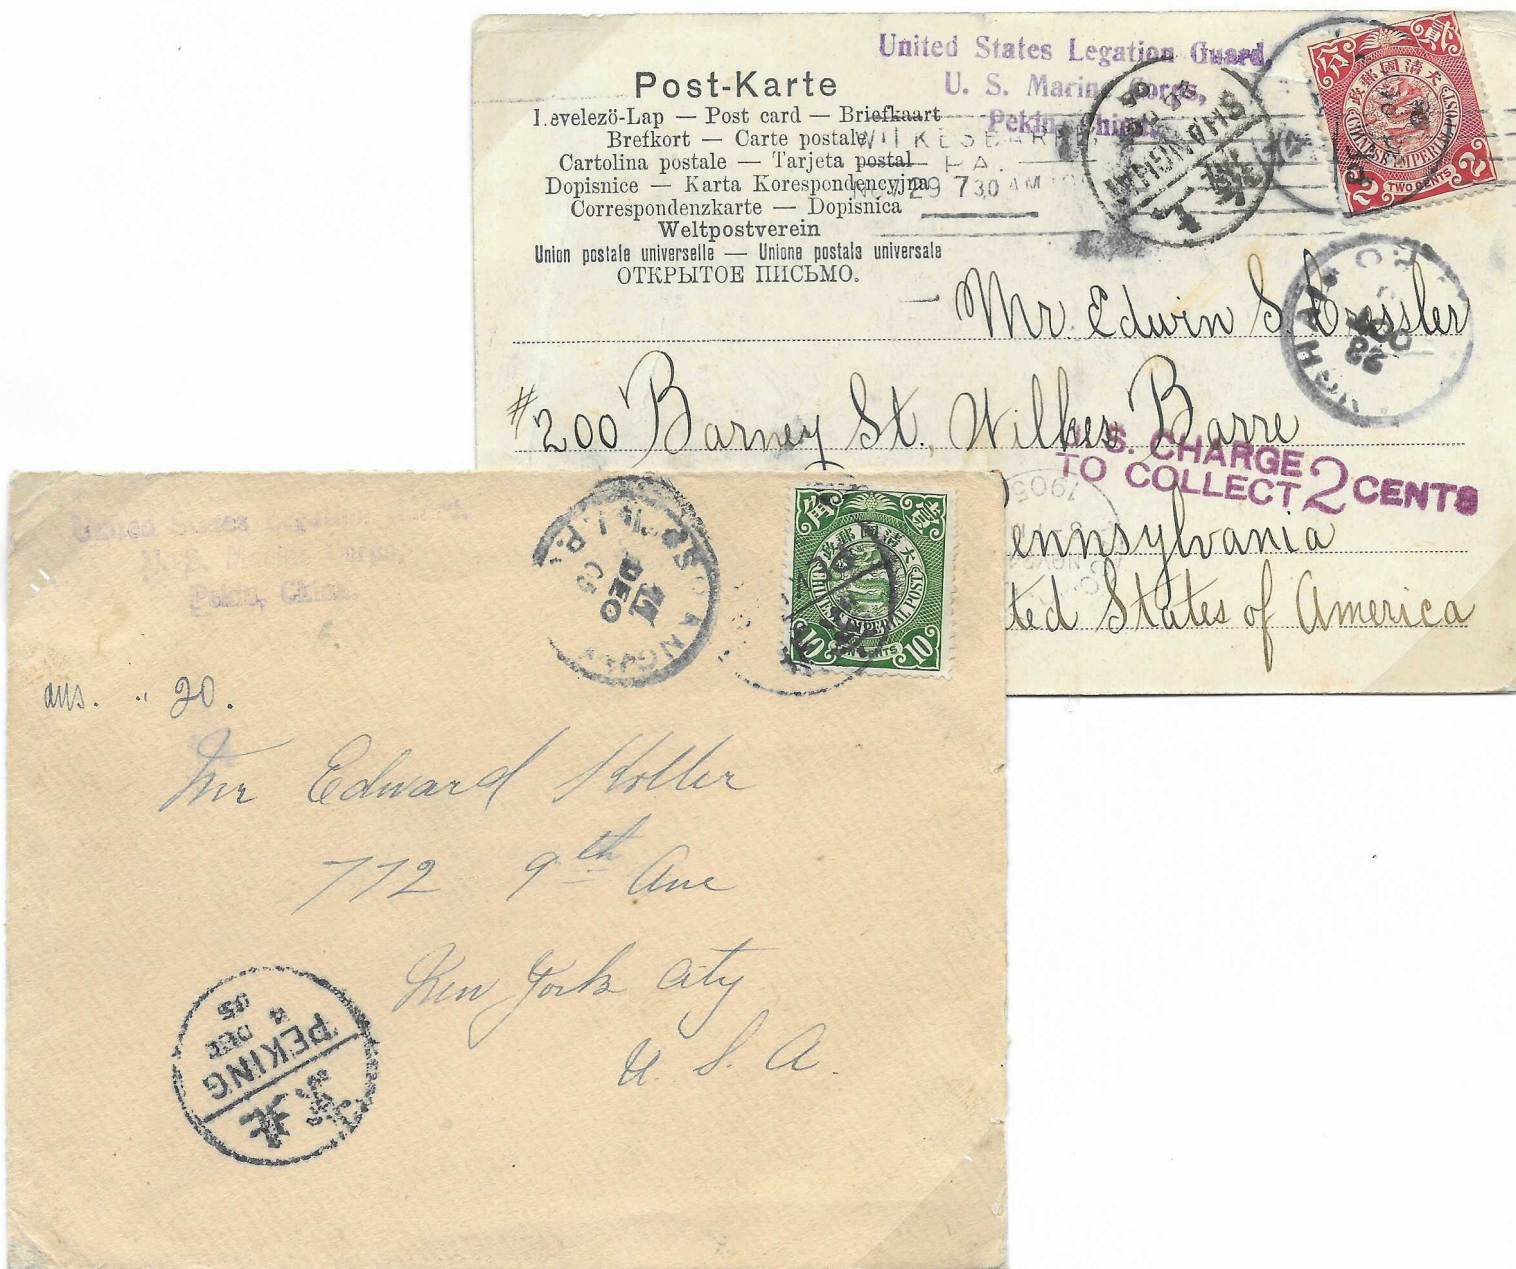 United States Legation Guard,
U. S. Marine Corps,
Pekin, China.
Post-Karte
Levelezö-Lap — Post card — Briefkaart
Brefkort — Carte postale
Cartolina postale — Tarjeta postal
Dopisnice — Karta Korespondencyjna
Correspondenzkarte — Dopisnica
Weltpostverein
Union postale universelle — Unione postale universale
ОТКРЫТОЕ ПИСЬМО.
WILKESBARRE
PA.
NOV 29 7 30 AM
SHANGHAI
上海
大清國郵政
貳分
CHINESE IMPERIAL POST
2 TWO CENTS 2
Mr. Edwin S. Cressler
#200 Barney St., Wilkes Barre
U.S. CHARGE
TO COLLECT 2 CENTS
1905
Pennsylvania
United States of America
United States Legation Guard,
U. S. Marine Corps,
Pekin, China.
11
DEC
05
大清國郵政
CHINESE IMPERIAL POST
10 TEN CENTS 10
ans. " 20.
Mr Edward Koller
772 9th Ave
New York City
U. S. A.
北京
PEKING
4
DEC
05